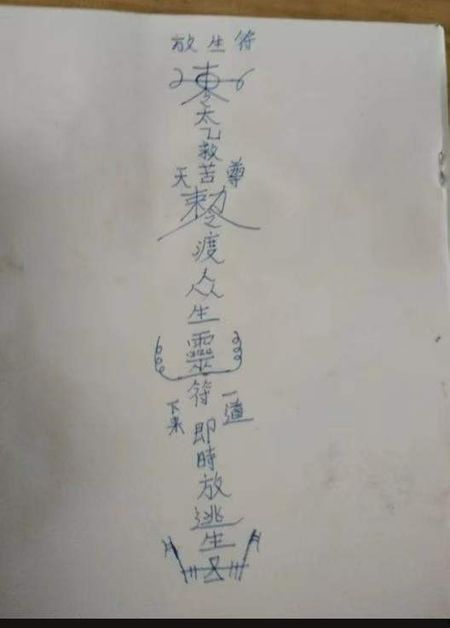 放生符
太乙救苦
天尊
敕令
渡
众
生
靈
符
一道
下来
即
時
放
逃
生